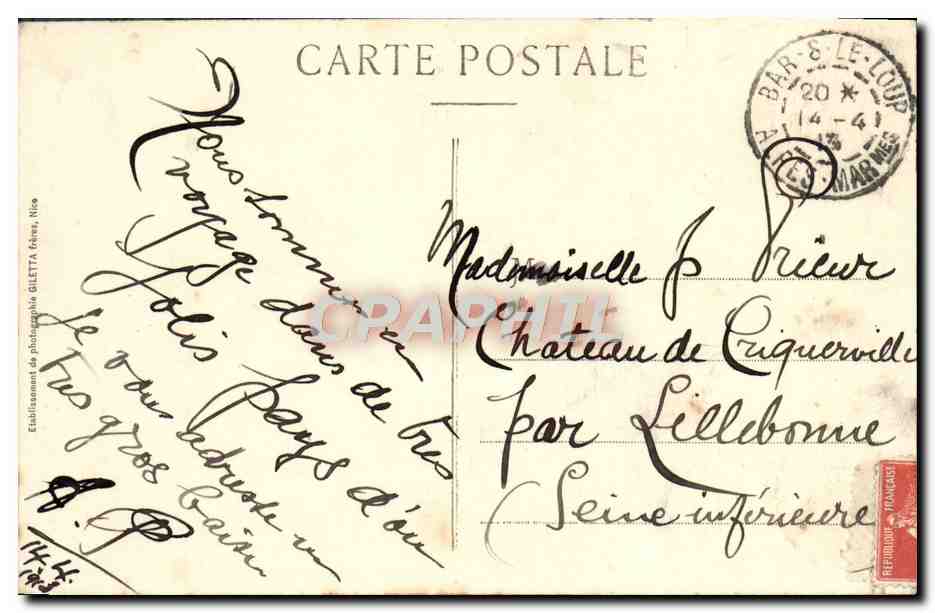 CARTE POSTALE
BAR-S-LE-LOUP
20 *
14-4
13
ALPES-MARMES
Nous sommes en
voyage dans de très
Jolis pays d'où
je vous adresse un
très gros baiser
A. P
14.4.
1913
Mademoiselle J. Prieur
Château de Triquerville
par Lillebonne
(Seine inférieure
REPUBLIQUE FRANÇAISE
Etablissement de photographie GILETTA frères, Nice
CPAPHIL